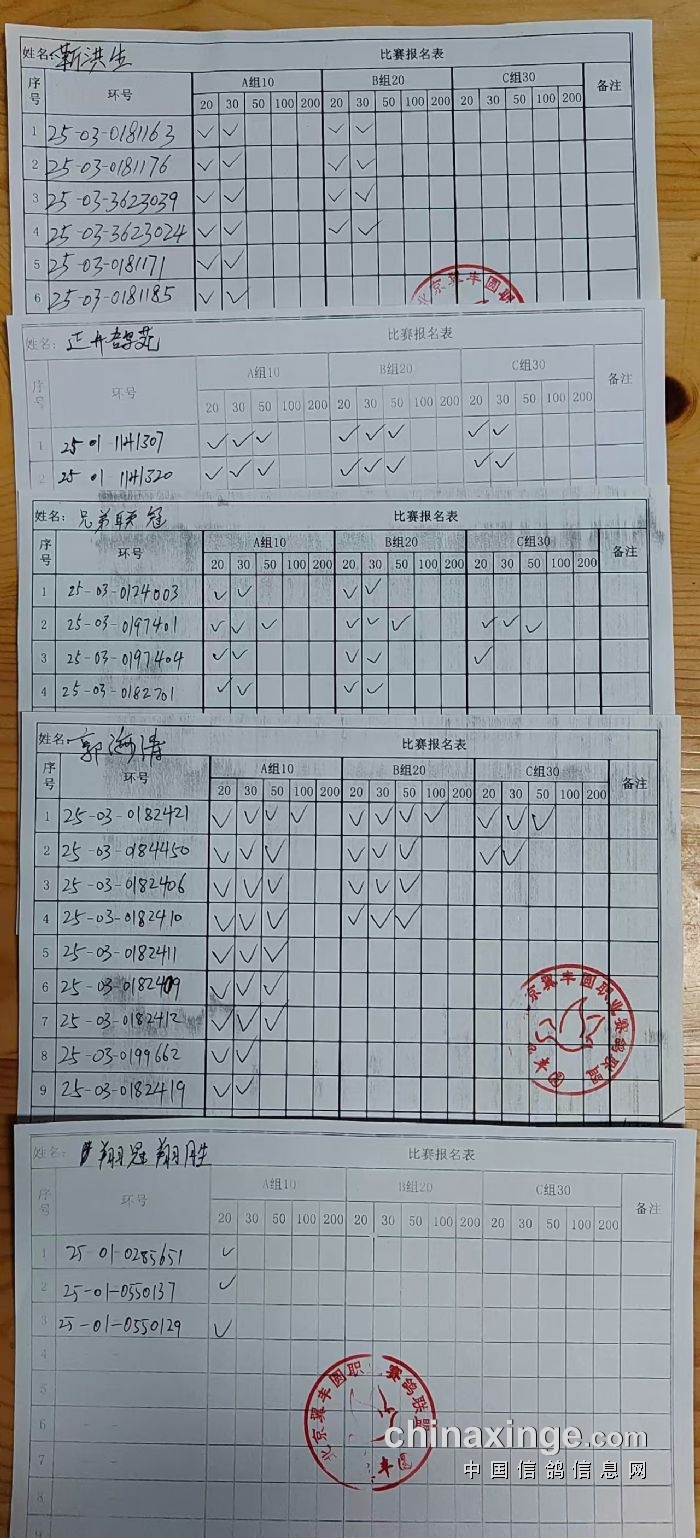 姓名: 靳洪生 比赛报名表
序号 环号 A组10 B组20 C组30 备注
20 30 50 100 200 20 30 50 100 200 20 30 50 100 200
1 25-03-0181163 ✓ ✓ ✓ ✓
2 25-03-0181176 ✓ ✓ ✓ ✓
3 25-03-3623039 ✓ ✓ ✓ ✓
4 25-03-3623024 ✓ ✓ ✓ ✓
5 25-03-0181171 ✓ ✓
6 25-03-0181185 ✓ ✓
北京翼丰圆职
姓名: 比赛报名表
序号 环号 A组10 B组20 C组30 备注
20 30 50 100 200 20 30 50 100 200 20 30 50 100 200
1 25 01 1141307 ✓ ✓ ✓ ✓ ✓ ✓ ✓ ✓
2 25 01 1141320 ✓ ✓ ✓ ✓ ✓ ✓ ✓ ✓
姓名: 兄弟联冠 比赛报名表
序号 环号 A组10 B组20 C组30 备注
20 30 50 100 200 20 30 50 100 200 20 30 50 100 200
1 25-03-0124003 ✓ ✓ ✓ ✓
2 25-03-0197401 ✓ ✓ ✓ ✓ ✓ ✓ ✓ ✓ ✓
3 25-03-0197404 ✓ ✓ ✓ ✓ ✓
4 25-03-0182701 ✓ ✓ ✓ ✓
姓名: 郭海涛 比赛报名表
序号 环号 A组10 B组20 C组30 备注
20 30 50 100 200 20 30 50 100 200 20 30 50 100 200
1 25-03-0182421 ✓ ✓ ✓ ✓ ✓ ✓ ✓ ✓ ✓ ✓ ✓
2 25-03-0184450 ✓ ✓ ✓ ✓ ✓ ✓ ✓ ✓
3 25-03-0182406 ✓ ✓ ✓ ✓ ✓ ✓
4 25-03-0182410 ✓ ✓ ✓ ✓ ✓ ✓
5 25-03-0182411 ✓ ✓ ✓
6 25-03-0182409 ✓ ✓ ✓
7 25-03-0182412 ✓ ✓ ✓
8 25-03-0199662 ✓ ✓
9 25-03-0182419 ✓ ✓
京翼丰圆职业赛鸽联盟
丰圆
姓名: 翔冠翔胜 比赛报名表
序号 环号 A组10 B组20 C组30 备注
20 30 50 100 200 20 30 50 100 200 20 30 50 100 200
1 25-01-0285651 ✓
2 25-01-0550137 ✓
3 25-01-0550129 ✓
4
5
6
7
8
北京翼丰圆职 赛鸽联盟
丰圆
chinaxinge.com
中国信鸽信息网